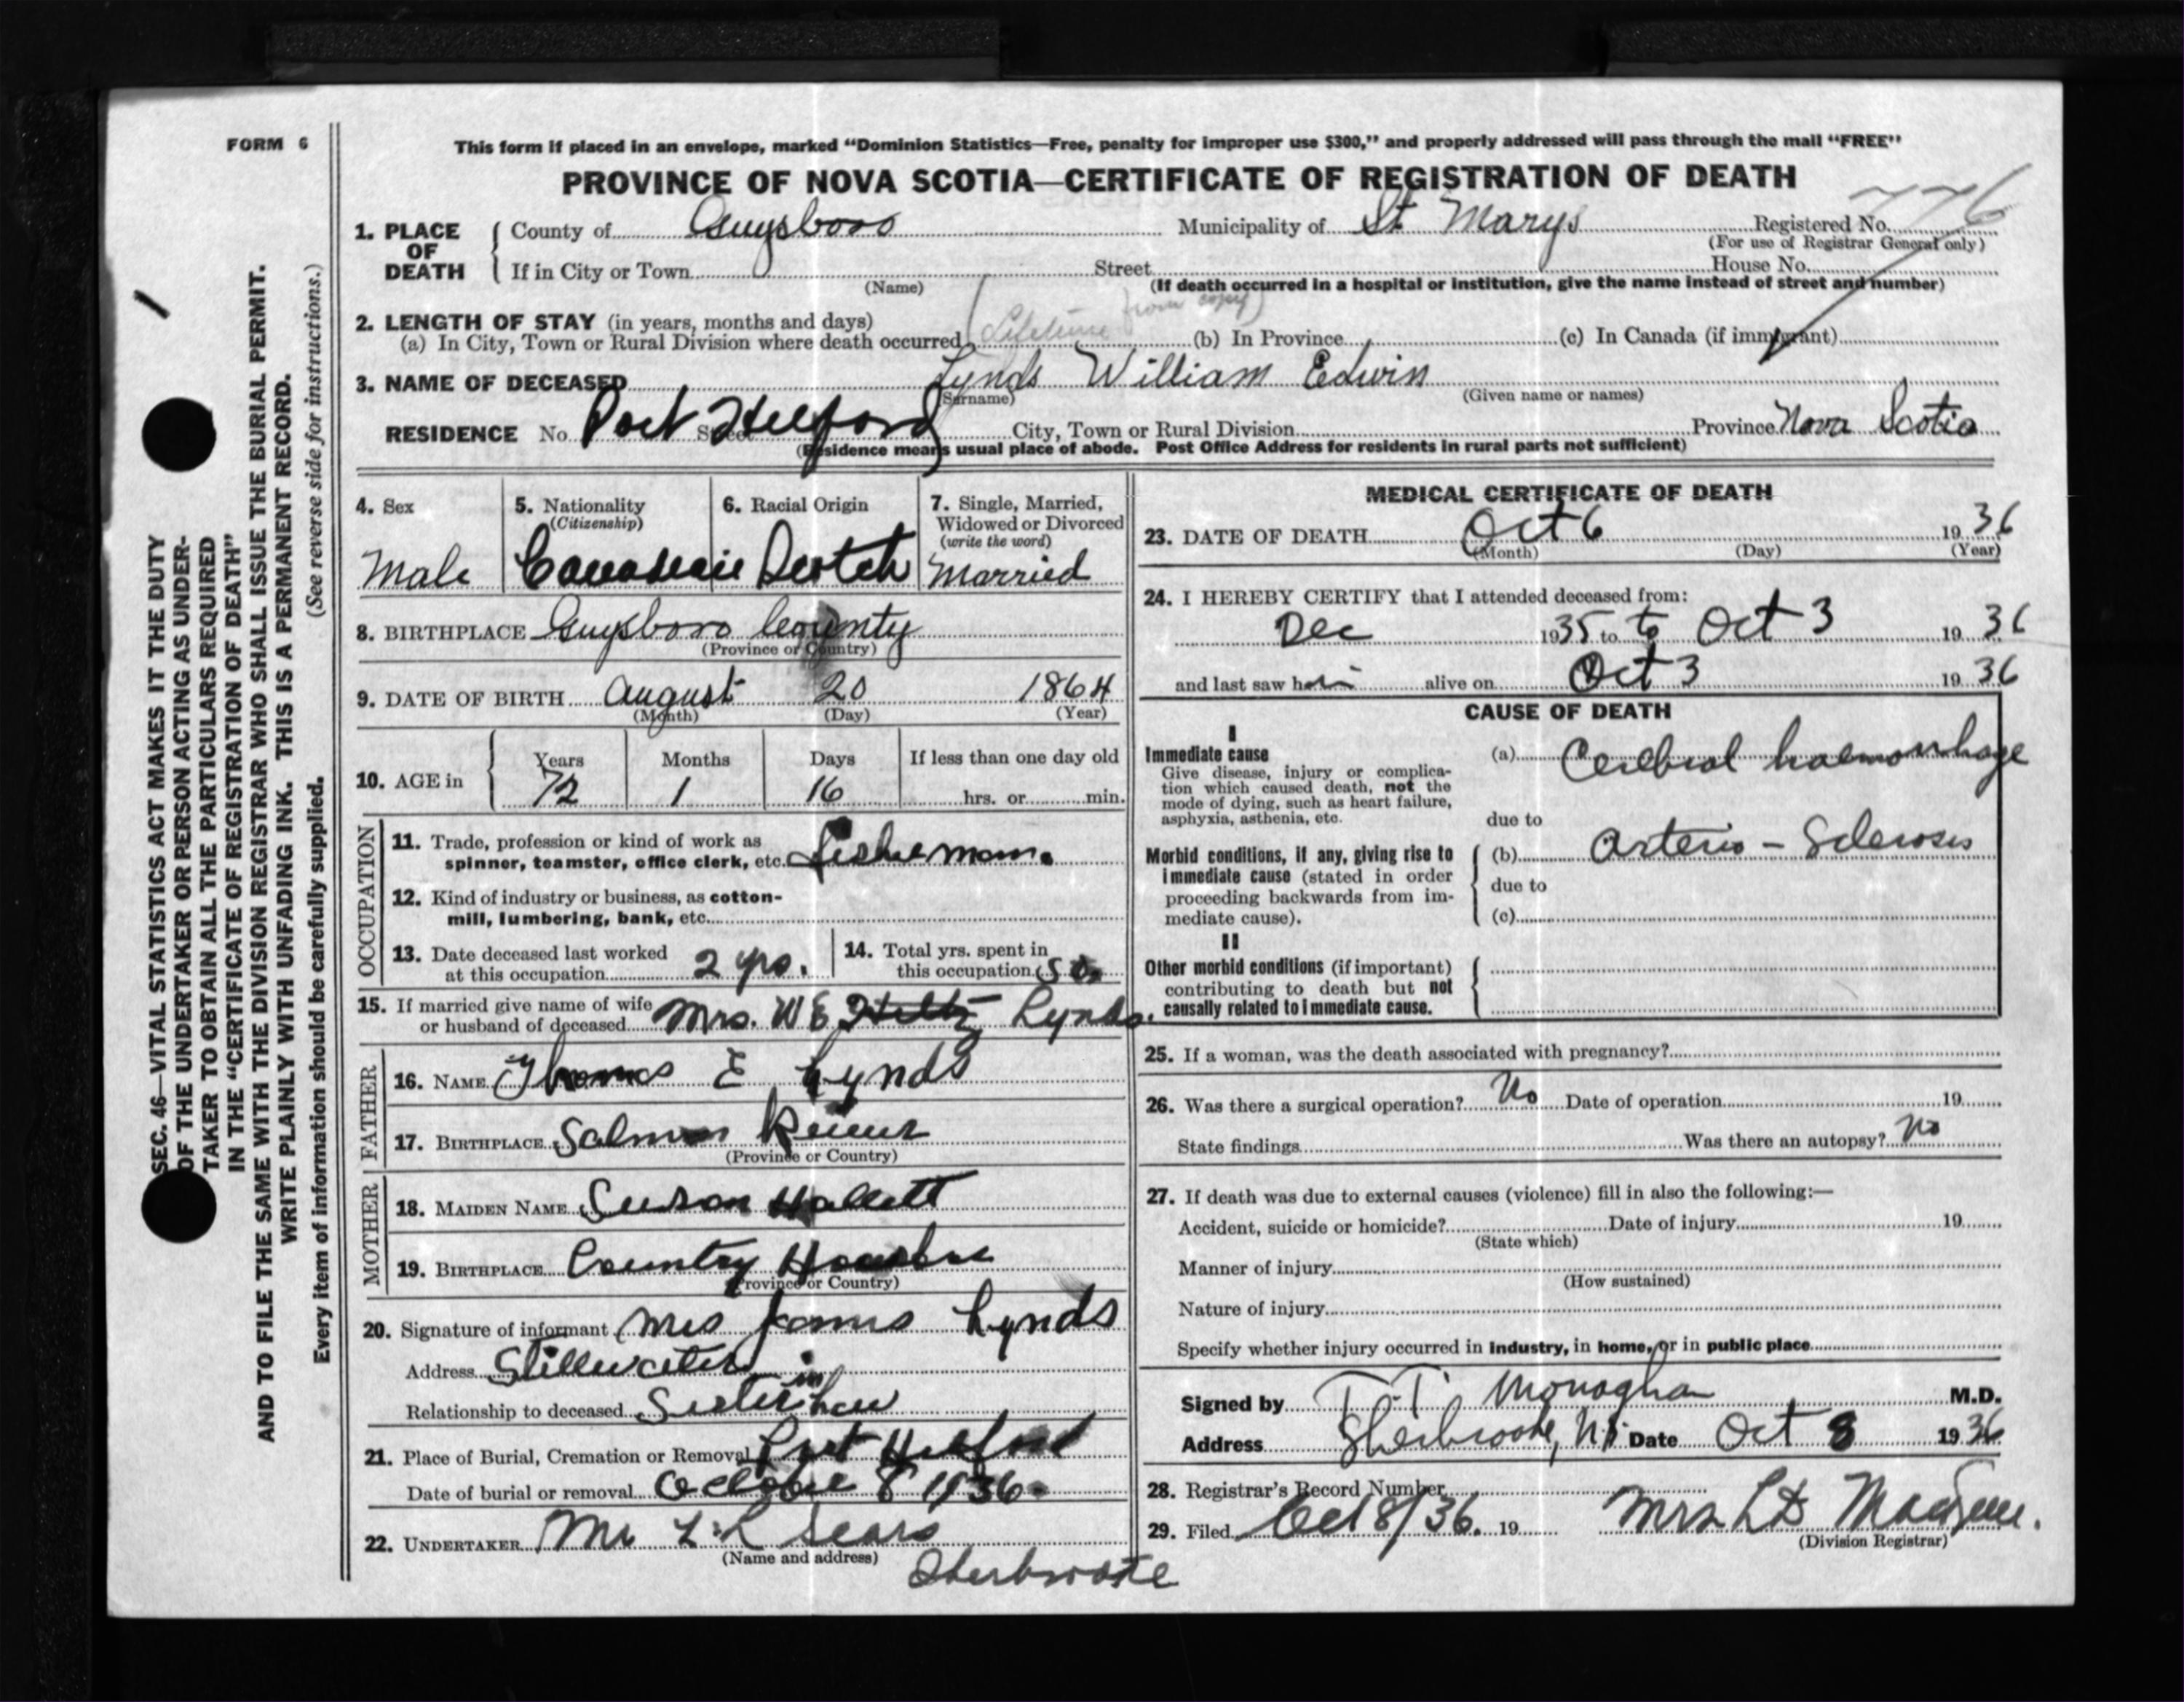 FORM 6
This form if placed in an envelope, marked “Dominion Statistics—Free, penalty for improper use $300,” and properly addressed will pass through the mail “FREE”
PROVINCE OF NOVA SCOTIA—CERTIFICATE OF REGISTRATION OF DEATH
776
1. PLACE OF DEATH { County of Guysboro Municipality of St Marys Registered No.
(For use of Registrar General only)
If in City or Town Street House No.
(Name) (If death occurred in a hospital or institution, give the name instead of street and number)
2. LENGTH OF STAY (in years, months and days) from copy)
(a) In City, Town or Rural Division where death occurred (Lifetime (b) In Province (c) In Canada (if immigrant)
3. NAME OF DECEASED Lynds William Edwin
(Surname) (Given name or names)
RESIDENCE No. Port Hilford Street City, Town or Rural Division Province Nova Scotia
(Residence means usual place of abode. Post Office Address for residents in rural parts not sufficient)
4. Sex 5. Nationality (Citizenship) 6. Racial Origin 7. Single, Married, Widowed or Divorced (write the word)
Male Canadian Scotch Married
8. BIRTHPLACE Guysboro County
(Province or Country)
9. DATE OF BIRTH August 20 1864
(Month) (Day) (Year)
10. AGE in { Years Months Days If less than one day old
72 1 16 hrs. or min.
OCCUPATION
11. Trade, profession or kind of work as
spinner, teamster, office clerk, etc. Fisherman.
12. Kind of industry or business, as cotton-
mill, lumbering, bank, etc.
13. Date deceased last worked
at this occupation 2 yrs.
14. Total yrs. spent in
this occupation 50
15. If married give name of wife
or husband of deceased Mrs. W E Lynds.
FATHER
16. NAME Thomas E Lynds
17. BIRTHPLACE Salmon River
(Province or Country)
MOTHER
18. MAIDEN NAME Susan Hallett
19. BIRTHPLACE Country Harbor
(Province or Country)
20. Signature of informant Mrs James Lynds
Address Stillwater
Relationship to deceased Sister in law
21. Place of Burial, Cremation or Removal Port Hilford
Date of burial or removal October 8 1936
22. UNDERTAKER Mr L. R Sears
(Name and address) Sherbrooke
MEDICAL CERTIFICATE OF DEATH
23. DATE OF DEATH Oct 6 19 36
(Month) (Day) (Year)
24. I HEREBY CERTIFY that I attended deceased from:
Dec 1935 to to Oct 3 19 36
and last saw him alive on Oct 3 19 36
CAUSE OF DEATH
I
Immediate cause (a) Cerebral haemorrhage
Give disease, injury or complica-
tion which caused death, not the
mode of dying, such as heart failure,
asphyxia, asthenia, etc. due to
Morbid conditions, if any, giving rise to { (b) Arterio - Sclerosis
immediate cause (stated in order
proceeding backwards from im- due to
mediate cause). (c)
II
Other morbid conditions (if important)
contributing to death but not
causally related to immediate cause.
25. If a woman, was the death associated with pregnancy?
26. Was there a surgical operation? No Date of operation 19
State findings Was there an autopsy? No
27. If death was due to external causes (violence) fill in also the following:—
Accident, suicide or homicide? Date of injury 19
(State which)
Manner of injury
(How sustained)
Nature of injury
Specify whether injury occurred in industry, in home, or in public place
Signed by T. T. Monaghan M.D.
Address Sherbrooke, N.S Date Oct 8 19 36
28. Registrar's Record Number
29. Filed Oct 8/36. 19 Mrs L D
(Division Registrar)
SEC. 46—VITAL STATISTICS ACT MAKES IT THE DUTY
OF THE UNDERTAKER OR PERSON ACTING AS UNDER-
TAKER TO OBTAIN ALL THE PARTICULARS REQUIRED
IN THE “CERTIFICATE OF REGISTRATION OF DEATH”
AND TO FILE THE SAME WITH THE DIVISION REGISTRAR WHO SHALL ISSUE THE BURIAL PERMIT.
WRITE PLAINLY WITH UNFADING INK. THIS IS A PERMANENT RECORD.
Every item of information should be carefully supplied. (See reverse side for instructions.)